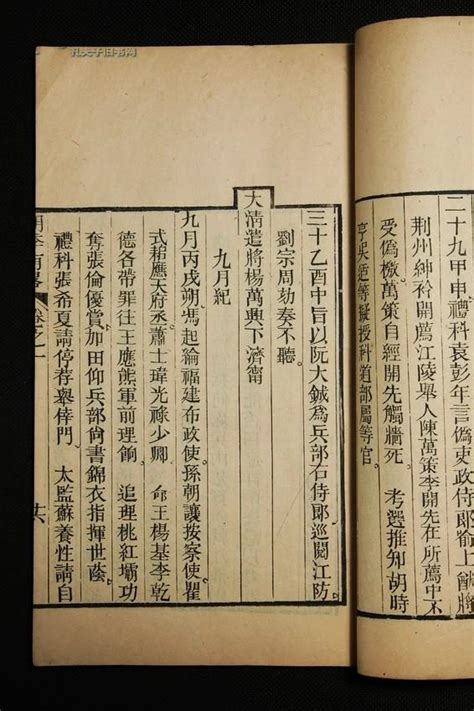 二十九甲申禮科袁彭年言僞吏政侍郎喻上猷將
荆州紳衿開薦江陵舉人陳萬策李開先在所薦中不
受僞檄萬策自經開先觸牆死　考選推知胡時
亨吳适等擬授科道部屬等官
三十乙酉中旨以阮大鋮爲兵部右侍郎巡閱江防
劉宗周劾奏不聽
大清遣將楊萬興下濟甯
九月紀
九月丙戌朔馮起綸福建布政使孫朝讓按察使瞿
式耜應天府丞蕭士瑋光祿少卿　命王楊基李乾
德各帶罪往王應熊軍前理餉　追理桃紅壩功
奪張倫優賞加田仰兵部尙書錦衣指揮世蔭
禮科張希夏請停存舉倖門　太監蘇養性請自
明季南畧 卷之一